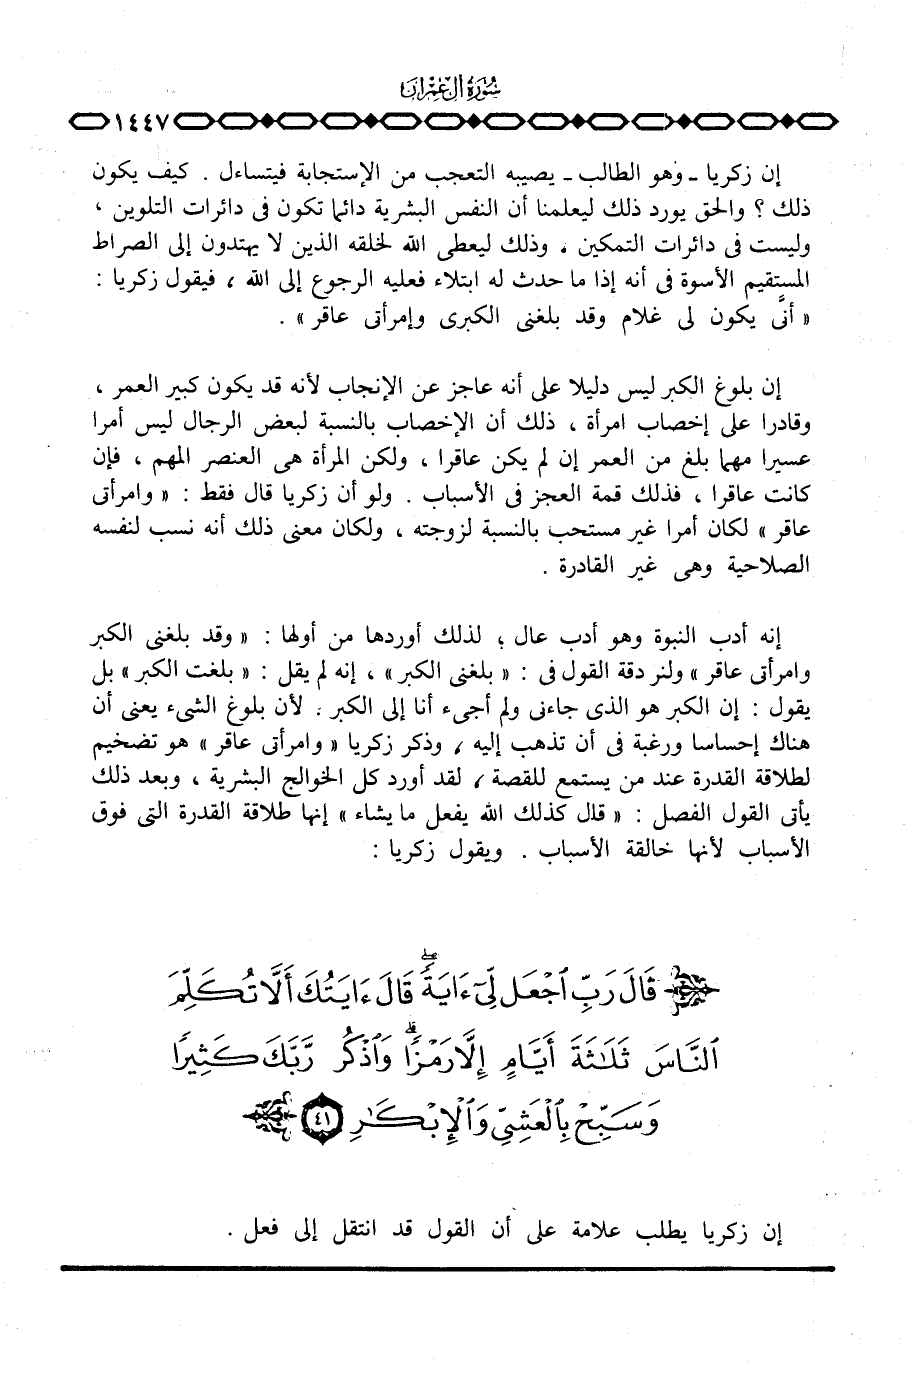 سورة آل عمران
١٤٤٧
إن زكريا ـ وهو الطالب ـ يصيبه التعجب من الإستجابة فيتساءل . كيف يكون
ذلك ؟ والحق يورد ذلك ليعلمنا أن النفس البشرية دائما تكون فى دائرات التلوين ،
وليست فى دائرات التمكين ، وذلك ليعطى الله لخلقه الذين لا يهتدون إلى الصراط
المستقيم الأسوة فى أنه إذا ما حدث له ابتلاء فعليه الرجوع إلى الله ، فيقول زكريا :
« أنَّى يكون لى غلام وقد بلغنى الكبرى وإمرأتى عاقر » .
إن بلوغ الكبر ليس دليلا على أنه عاجز عن الإنجاب لأنه قد يكون كبير العمر ،
وقادرا على إخصاب امرأة ، ذلك أن الإخصاب بالنسبة لبعض الرجال ليس أمرا
عسيرا مهما بلغ من العمر إن لم يكن عاقرا ، ولكن المرأة هى العنصر المهم ، فإن
كانت عاقرا ، فذلك قمة العجز فى الأسباب . ولو أن زكريا قال فقط : « وامرأتى
عاقر » لكان أمرا غير مستحب بالنسبة لزوجته ، ولكان معنى ذلك أنه نسب لنفسه
الصلاحية وهى غير القادرة .
إنه أدب النبوة وهو أدب عال ، لذلك أوردها من أولها : « وقد بلغنى الكبر
وامرأتى عاقر » ولنر دقة القول فى : « بلغنى الكبر » ، إنه لم يقل : « بلغت الكبر » بل
يقول : إن الكبر هو الذى جاءنى ولم أجىء أنا إلى الكبر . لأن بلوغ الشىء يعنى أن
هناك إحساسا ورغبة فى أن تذهب إليه ، وذكر زكريا « وامرأتى عاقر » هو تضخيم
لطلاقة القدرة عند من يستمع للقصة ، لقد أورد كل الخوالج البشرية ، وبعد ذلك
يأتى القول الفصل : « قال كذلك الله يفعل ما يشاء » إنها طلاقة القدرة التى فوق
الأسباب لأنها خالقة الأسباب . ويقول زكريا :
قَالَ رَبِّ ٱجْعَل لِّىٓ ءَايَةًۖ قَالَ ءَايَتُكَ أَلَّا تُكَلِّمَ
ٱلنَّاسَ ثَلَٰثَةَ أَيَّامٍ إِلَّا رَمْزًاۗ وَٱذْكُر رَّبَّكَ كَثِيرًا
وَسَبِّحْ بِٱلْعَشِىِّ وَٱلْإِبْكَٰرِ ٤١
إن زكريا يطلب علامة على أن القول قد انتقل إلى فعل .